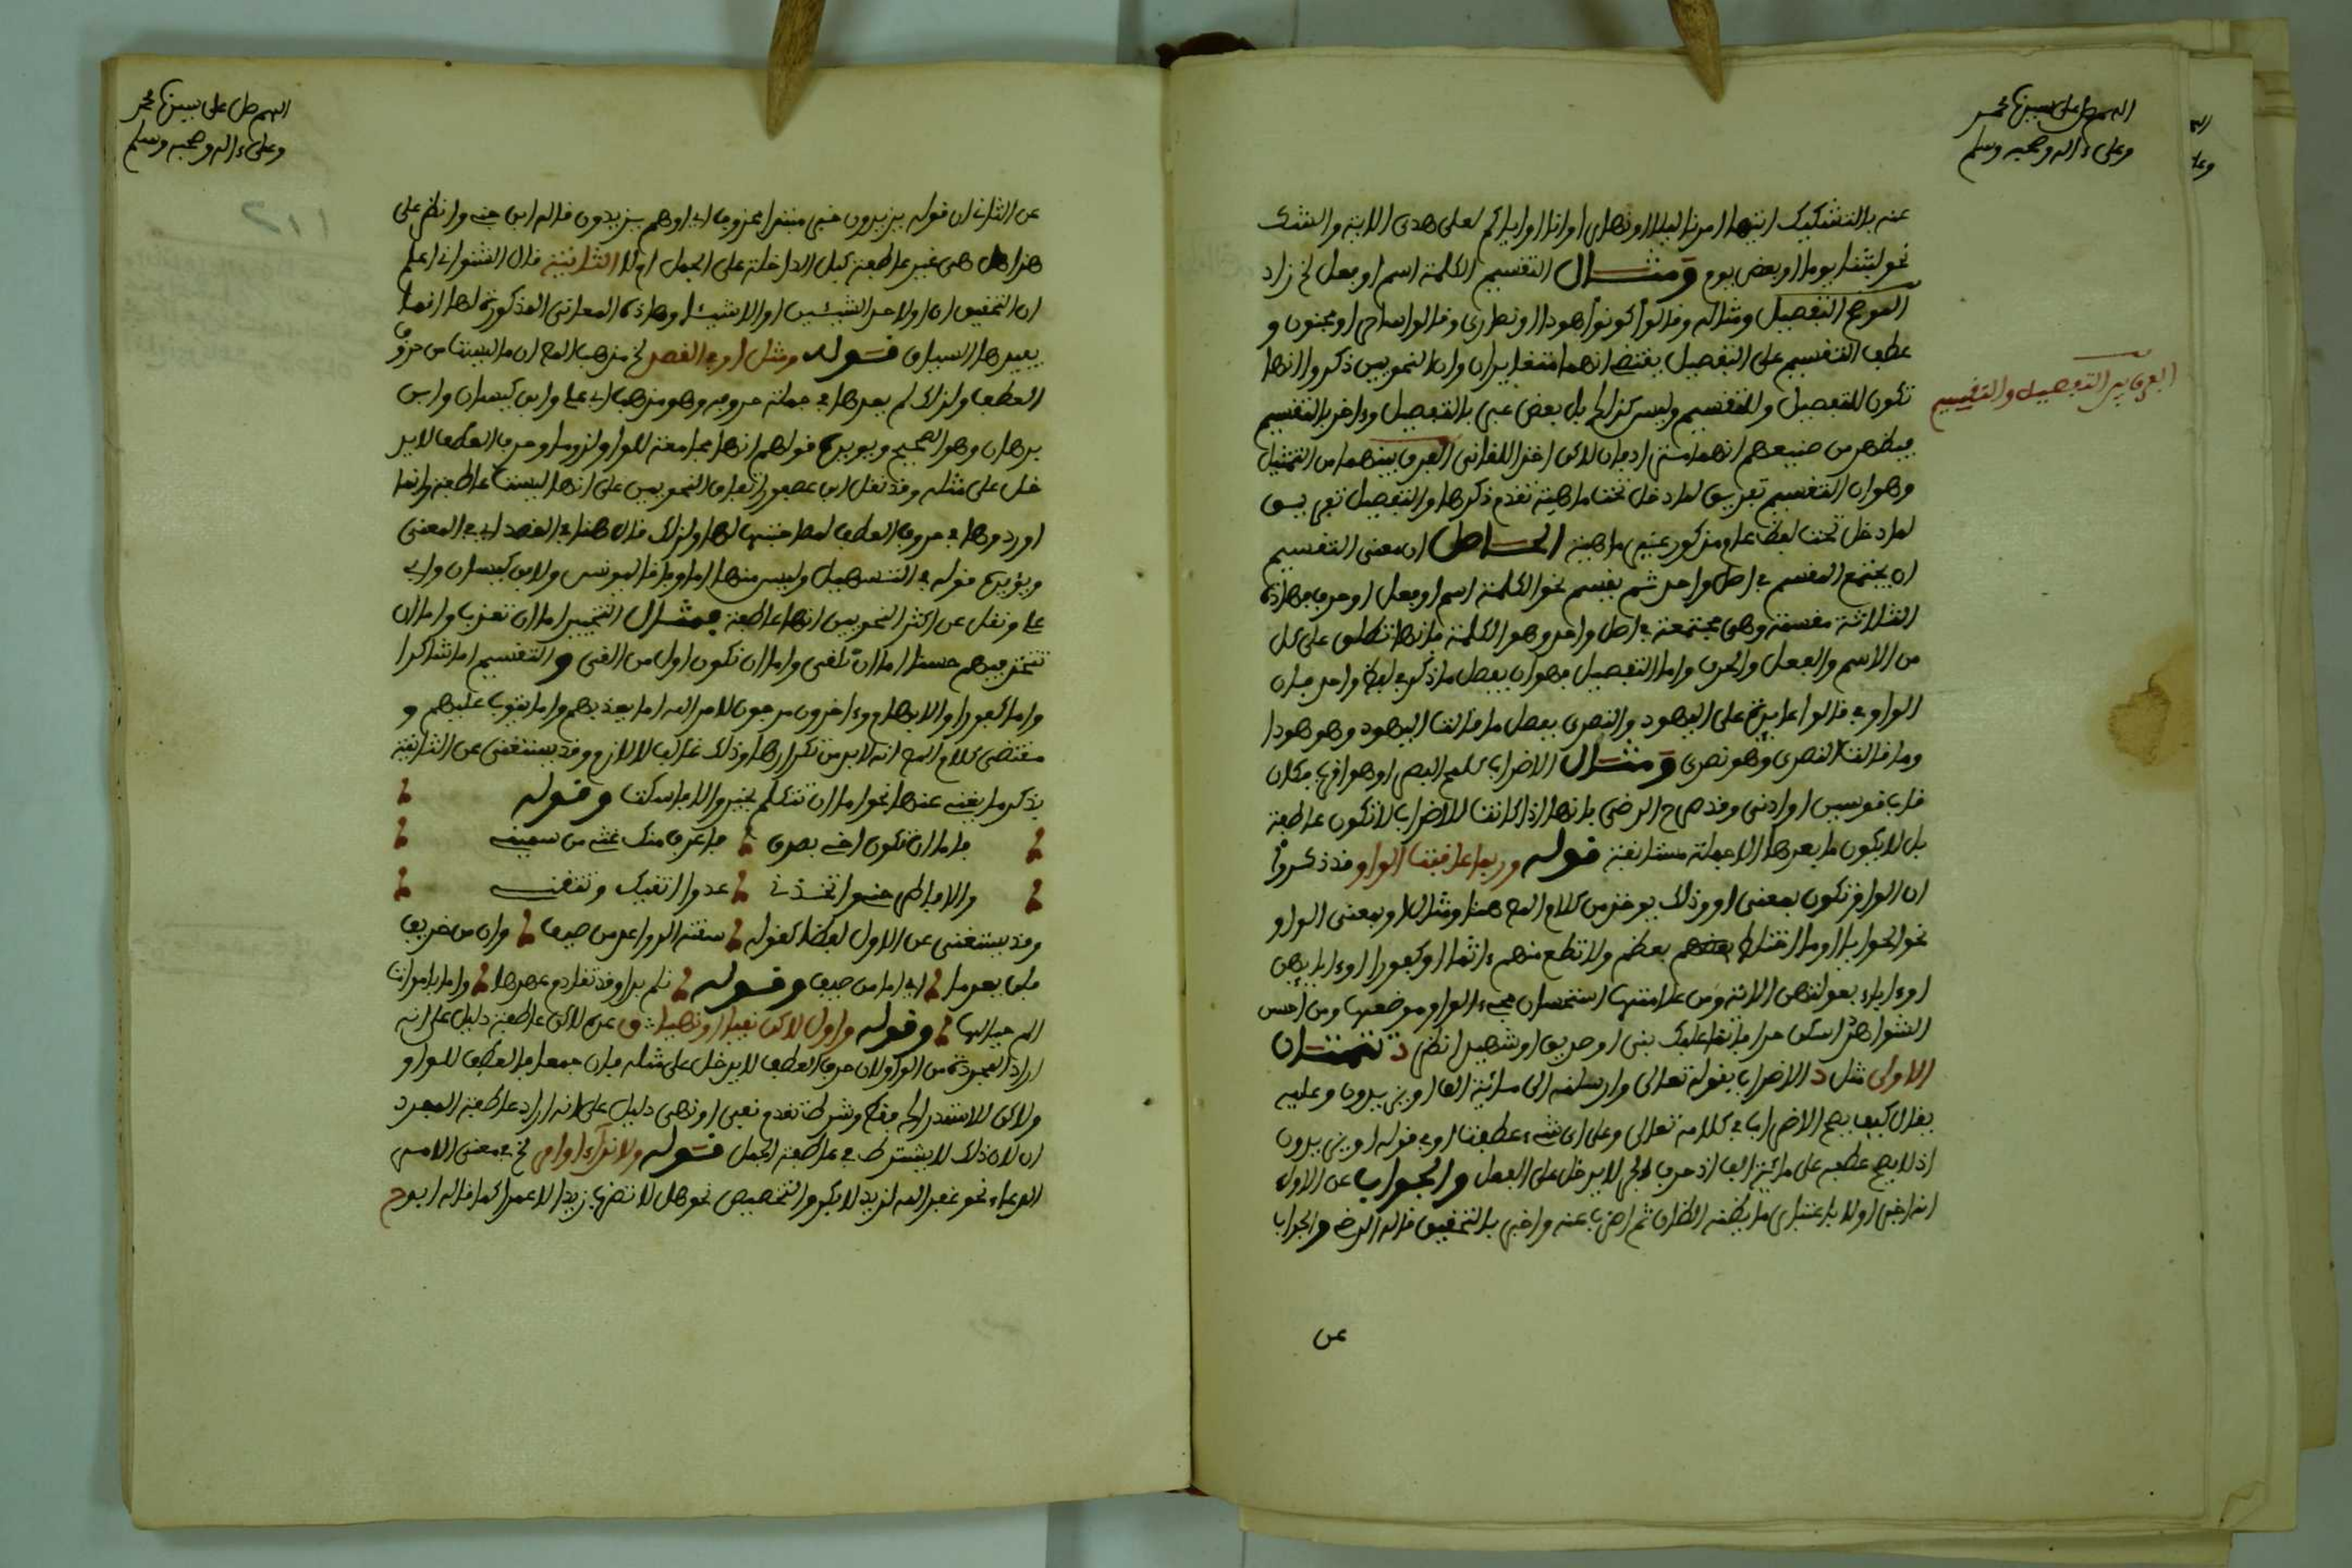 اللهم صل على سيدنا محمد
وعلى ءاله وصحبه وسلم
عنه بالتشكيك اتيها امرنا ليلا او نهارا وانا او اياكم لعلى هدى الاية والشك
نحو لبثنا يوما او بعض يوم ومثال التقسيم الكلمة اسم او فعل لخ زاد
الموضح التفصيل ومثاله وقالوا كونوا هودا او نصارى وقالوا ساحر او مجنون و
عطف التقسيم على التفصيل يقتضي انهما متغايران وان النحويين ذكروا انها
تكون للتفصيل وللتقسيم وليس كذلك بل بعض عبر بالتفصيل وءاخر بالتقسيم
الفرق بين التفصيل والتقسيم
فيظهر من صنيعهم انهما مترادفان لاكن اخذ اللقاني الفرق بينهما من التمثيل
وهو ان التقسيم تعريف لما دخل تحت ماهية تقدم ذكرها والتفصيل تعريف
لما دخل تحت لفظ عام مذكور غير ماهية الحاصل ان معنى التقسيم
ان يجتمع المقسم في اصل واحد ثم يقسم نحو الكلمة اسم او فعل او حرف فهاذه
الثلاثة مقسمة وهي مجتمعة في اصل واحد وهو الكلمة فانها تطلق على كل
من الاسم والفعل والحرف واما التفصيل فهو ان يفصل ما ذكر في لفظ واحد فان
الواو في قالوا عايد على اليهود والنصرى ففصل ما قالت اليهود وهو هودا
وما قالت النصرى وهو نصرى ومثال الاضراب كلمح البصر او هو اقرب فكان
قاب قوسين او ادنى وقد صرح الرضي بانها اذا كانت للاضراب لا تكون عاطفة
بل لا يكون ما بعدها الا جملة مستانفة قوله وربما عاقبت الواو قد ذكروا
ان الواو تكون بمعنى او وذلك يوخذ من كلام المص هنا ومثال او بمعنى الواو
نحو الحوايا او ما اختلط بعظم ولا تطع منهم ءاثما او كفورا او ءابايهن
او ءاباء بعولتهن الاية ومن علامتها استحسان مجيء الواو موضعها ومن احسن
الشواهد اسكن حرا فانما عليك نبي او صديق او شهيد انظر د تتمتان
الاولى مثل د الاضراب بقوله تعالى وارسلنه الى مائة الف او يزيدون وعليه
يقال كيف يصح الاضراب في كلامه تعالى وعلى اي شيء عطفت او في قوله او يزيدون
اذ لا يصح عطفه على مائة الف اذ حرف الجر لا يدخل على الفعل والجواب عن الاول
انه اخبر اولا باعتبار ما يظنه الظان ثم اضرب عنه واخبر بالتحقيق قاله الرضي والجواب
عن
اللهم صل على سيدنا محمد
وعلى ءاله وصحبه وسلم
عن الثاني ان قوله يزيدون خبر مبتدا محذوف اي او هم يزيدون قاله ابن جني وانظر على
هذا هل هي غير عاطفة كبل الداخلة على الجمل ام لا الثانية قال الشنواني اعلم
ان التحقيق ان او لاحد الشيئين او الاشياء وهاذه المعاني المذكورة لها انما
يفيدها السياق قوله ومثل او في القصد لخ مذهب المص ان ما ليست من حروف
العطف ولذلك لم يعدها في جملة حروفه وهو مذهب ابي علي وابن كيسان وابن
برهان وهو الصحيح ويويده قولهم انها مجامعة للواو لزوما وحرف العطف لا يد
خل على مثله وقد نقل ابن عصفور اتفاق النحويين على انها ليست عاطفة وانما
اوردوها في حروف العطف لمصاحبتها لها ولذلك قال هنا في القصد اي في المعنى
ويؤيده قوله في التسهيل وليس منها اما وفاقا ليونس ولابن كيسان وابي
علي ونقل عن اكثر النحويين انها عاطفة فمثال التخيير اما ان تعذب واما ان
تتخذ فيهم حسنا اما ان تلقي واما ان نكون اول من القى والتقسيم اما شاكرا
واما كفورا والابهام وءاخرون مرجون لامر الله اما يعذبهم واما يتوب عليهم و
مقتضى كلام المص انه لابد من تكرارها وذلك غالب لا لازم وقد يستغنى عن الثانية
بذكر ما يغني عنها نحو اما ان تتكلم بخير والا فاسكت وقوله
فاما ان تكون اخي بصدق فاعرف منك غثي من سميني
والا فاطرحني واتخذني عدوا اتقيك وتتقيني
وقد يستغنى عن الاول لفظا كقوله سقته الرواعد من صيف وان من خريف
فلن يعدما اي اما من صيف وقوله تلم بدار قد تقادم عهدها واما باموات
الم خيالها وقوله واول لاكن نفيا او نهيا ق عدم لاكن عاطفة دليل على انه
اراد المجردة من الواو لان حرف العطف لا يدخل على مثله فان جمعا فالعطف للواو
ولاكن للاستدراك فقط وشرطه تقدم نفي او نهي دليل على انه اراد عاطفة المفرد
ان لان ذلك لا يشترط في عاطفة الجمل قوله ولا نداء او امرا لخ في معنى الامر
الدعاء نحو غفر الله لزيد لا بكر والتخصيص نحو هل لا تضرب زيدا لا عمرا كما قاله ابو ح